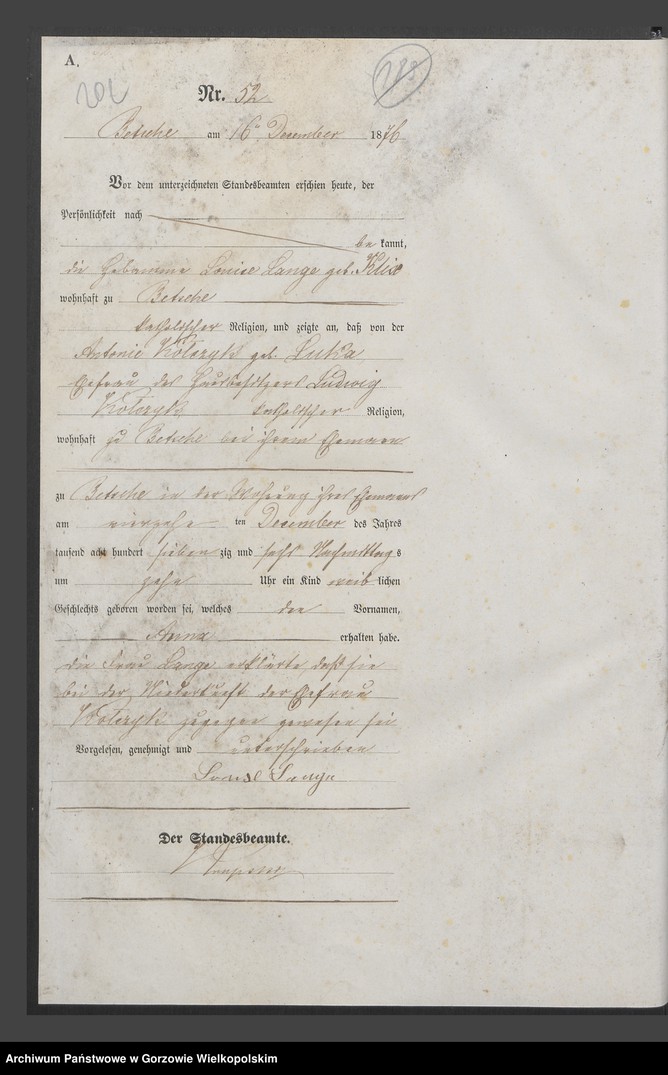 A.
Nr. 52
Betsche am 16 December 1876
Vor dem unterzeichneten Standesbeamten erschien heute, der
Persönlichkeit nach
be kannt,
die Hebamme Louise Lange geb. Klix
wohnhaft zu Betsche
katholischer Religion, und zeigte an, daß von der
Antonie Kotczyk geb. Luka
Ehefrau des Hausbesitzers Ludwig
Kotczyk katholischer Religion,
wohnhaft zu Betsche bei ihrem Ehemann
zu Betsche in der Wohnung ihres Ehemanns
am vierzehn ten December des Jahres
tausend acht hundert sieben zig und sechs Nachmittag s
um zehn Uhr ein Kind weib lichen
Geschlechts geboren worden sei, welches den Vornamen,
Anna erhalten habe.
die Frau Lange erklärte, daß sie
bei der Niederkunft der Ehefrau
Kotczyk zugegen gewesen sei
Vorgelesen, genehmigt und unterschrieben
Louise Lange
Der Standesbeamte.
Archiwum Państwowe w Gorzowie Wielkopolskim